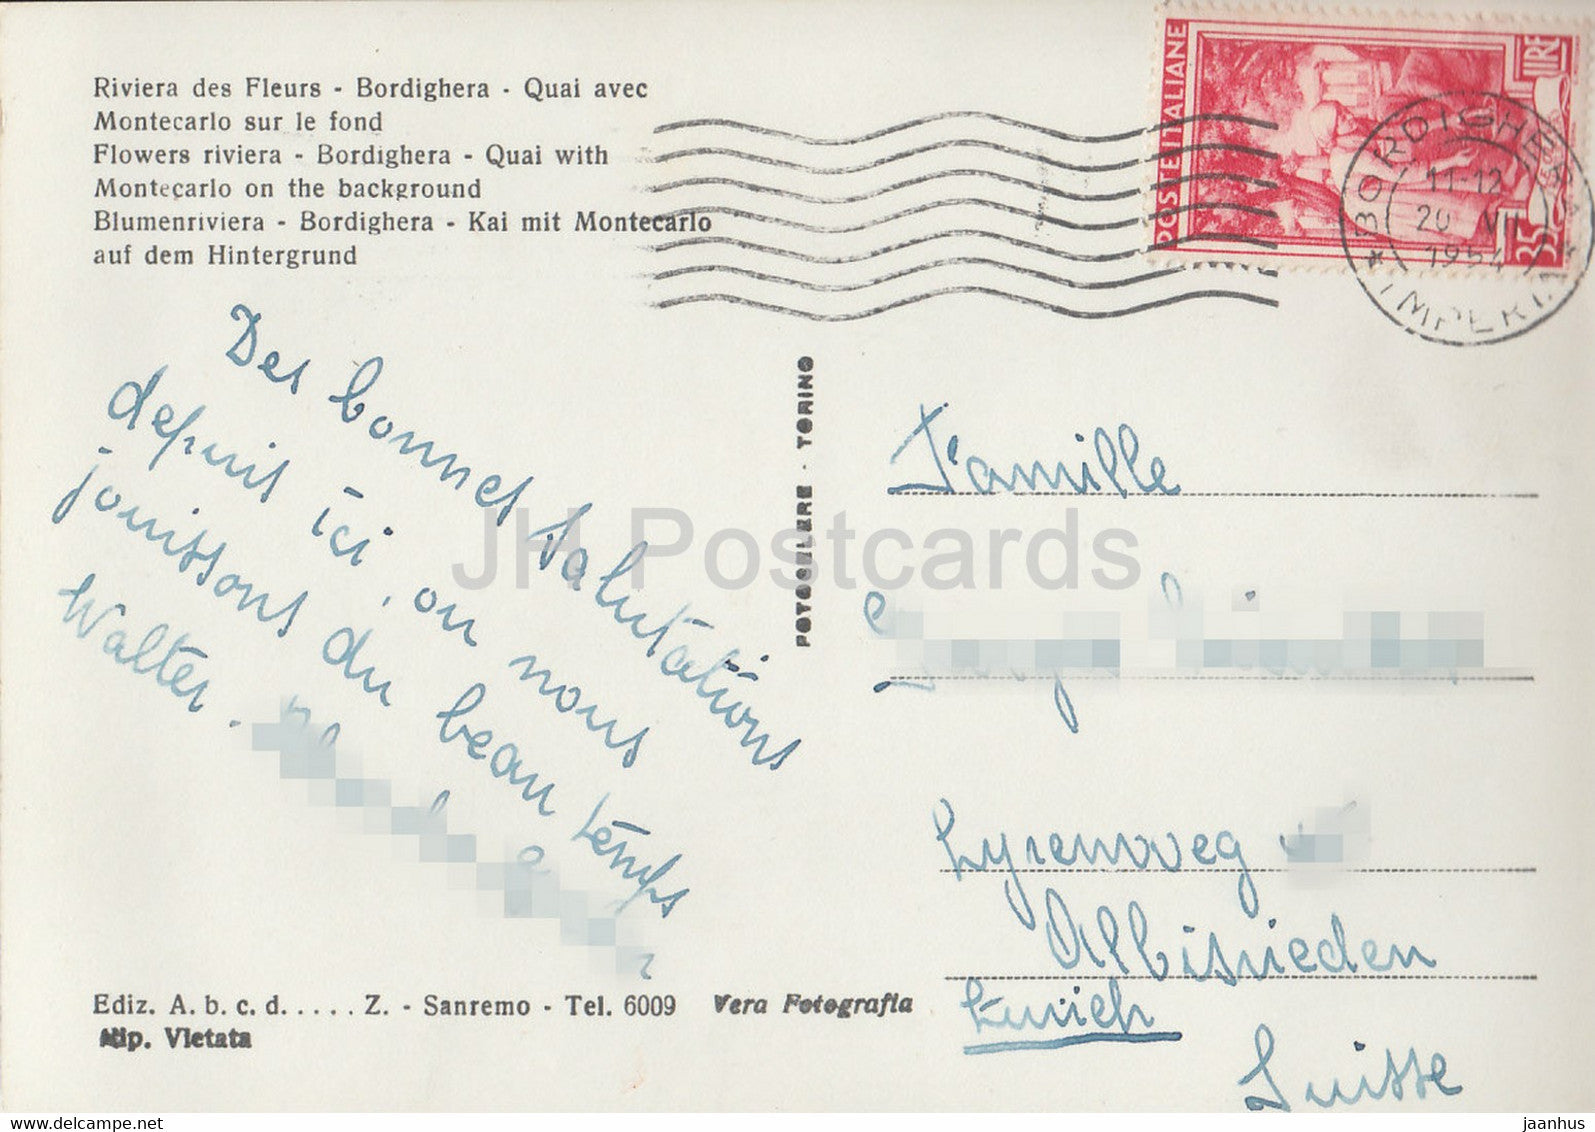 Riviera des Fleurs - Bordighera - Quai avec
Montecarlo sur le fond
Flowers riviera - Bordighera - Quai with
Montecarlo on the background
Blumenriviera - Bordighera - Kai mit Montecarlo
auf dem Hintergrund
POSTE ITALIANE
LIRE
35
BORDIGHERA
11-12
20 VII
1954
* IMPERIA *
Des bonnes salutations
depuis ici, on nous
jouissons du beau temps
Walter.
FOTOCELERE - TORINO
Famille
Lyrenweg
Albisrieden
Zürich
Suisse
Ediz. A. b. c. d. . . . . Z. - Sanremo - Tel. 6009 Vera Fotografia
Rip. Vietata
JH Postcards
delcampe.net
jaanhus